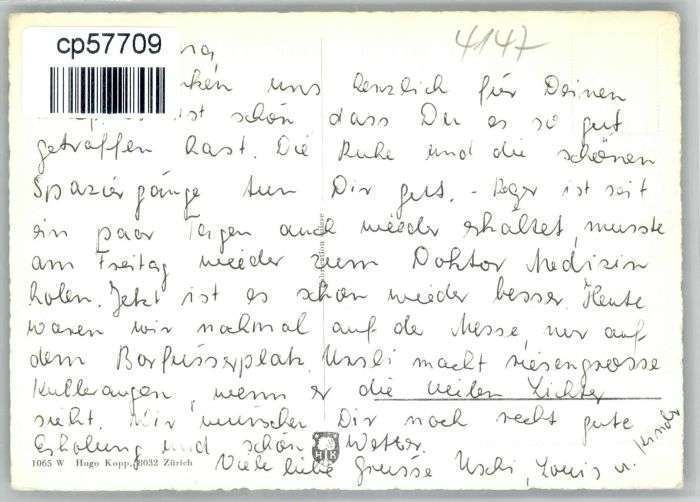 cp57709
4147
uns herzlich für Deinen
ist schön dass Du es so gut
getroffen hast. Die Ruhe und die schönen
Spaziergänge tun Dir gut. - Roger ist seit
ein paar Tagen auch wieder erkältet, musste
am Freitag wieder zum Doktor Medizin
holen. Jetzt ist es schon wieder besser. Heute
waren wir nochmal auf der Messe, nur auf
dem Barfüsserplatz. Urseli macht riesengrosse
Kulleraugen, wenn er die vielen Lichter
sieht. Wir wünschen Dir noch recht gute
Erholung und schön Wetter.
Viele liebe Grüsse Uschi, Louis u. Kinder
1065 W Hugo Kopp, 8032 Zürich
HK